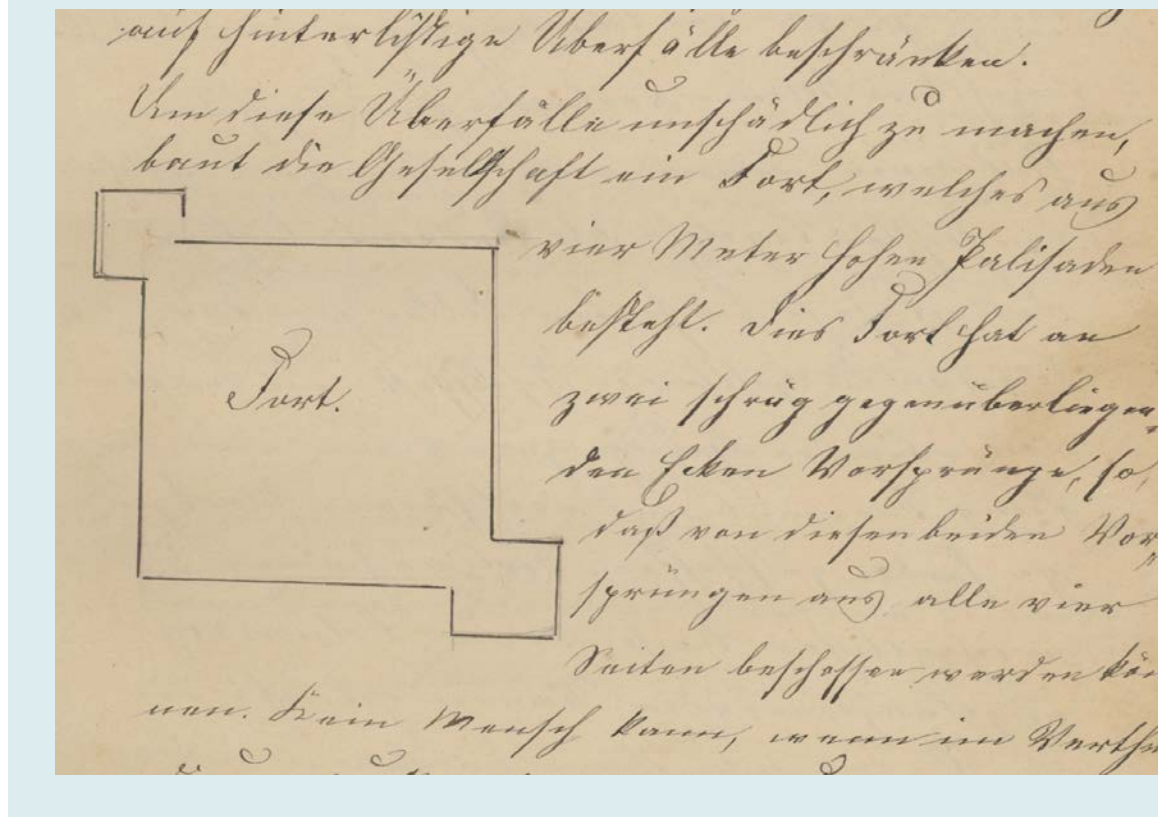 auf hinterlistige Überfälle beschränken.
Um diese Überfälle unschädlich zu machen,
baut die Gesellschaft ein Fort, welches aus
vier Meter hohen Palisaden
besteht. Dies Fort hat an
Fort.
zwei schräg gegenüberliegen-
den Ecken Vorsprünge, so,
daß von diesen beiden Vor-
sprüngen aus alle vier
Seiten beschossen werden kön
nen. Kein Mensch kann, wenn im Verthe